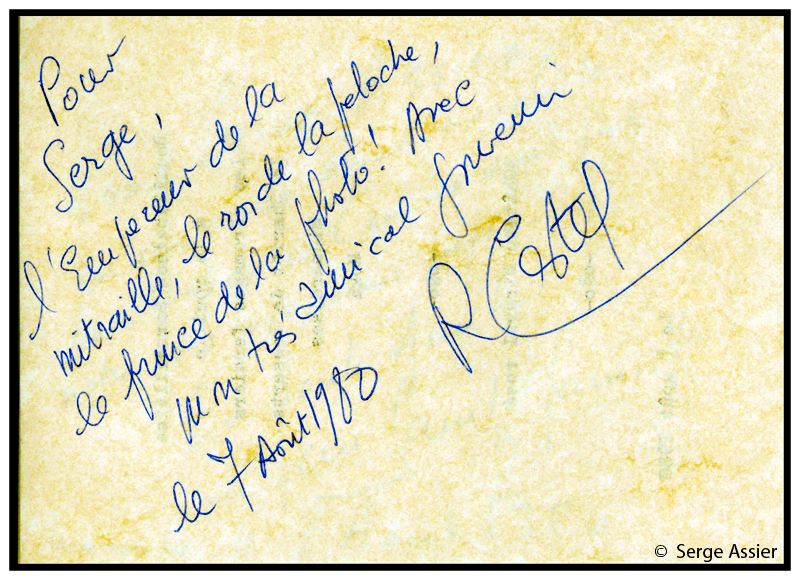 Pour
Serge,
l'Empereur de la
mitraille, le roi de la peloche,
le prince de la photo! Avec
mon très amical souvenir
le 7 Août 1980
© Serge Assier